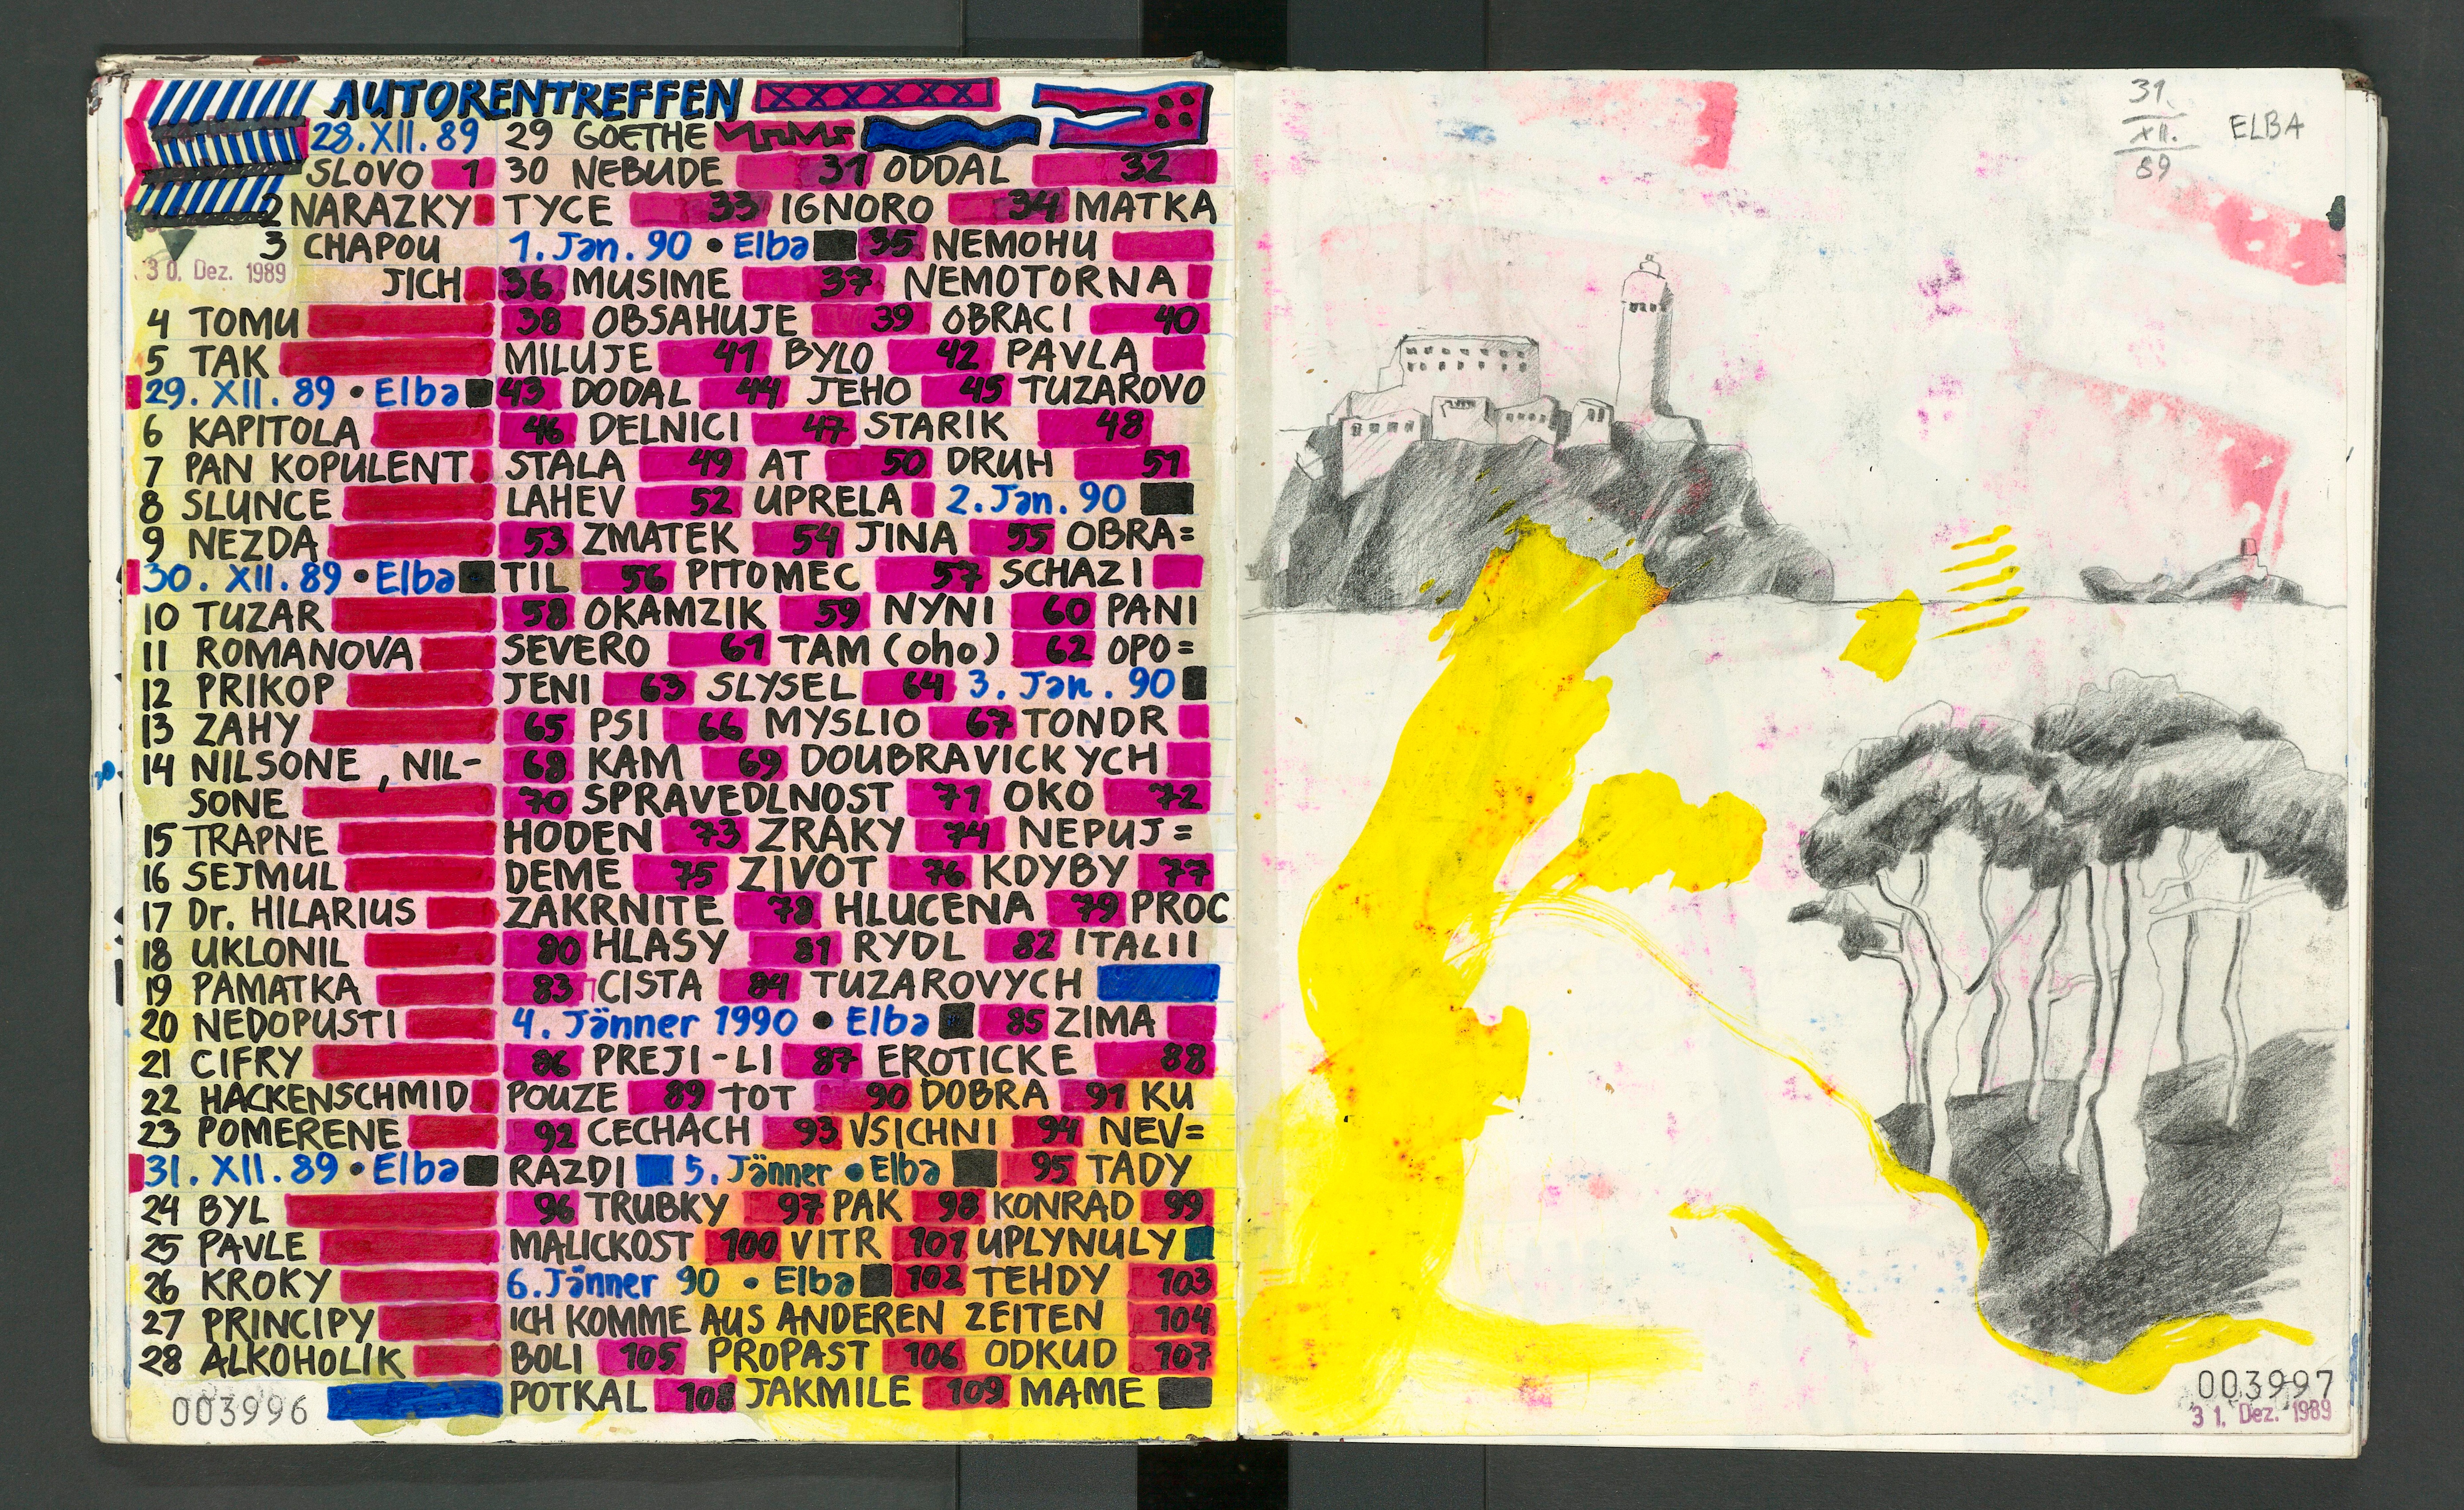 AUTORENTREFFEN
28.XII.89
SLOVO 1
2 NARAZKY
3 CHAPOU
30. Dez. 1989
JICH
4 TOMU
5 TAK
29. XII. 89 • Elba
6 KAPITOLA
7 PAN KOPULENT
8 SLUNCE
9 NEZDA
30. XII. 89 • Elba
10 TUZAR
11 ROMANOVA
12 PRIKOP
13 ZAHY
14 NILSONE, NIL-
SONE
15 TRAPNE
16 SEJMUL
17 Dr. HILARIUS
18 UKLONIL
19 PAMATKA
20 NEDOPUSTI
21 CIFRY
22 HACKENSCHMID
23 POMERENE
31. XII. 89 • Elba
24 BYL
25 PAVLE
26 KROKY
27 PRINCIPY
28 ALKOHOLIK
003996
29 GOETHE
30 NEBUDE 31 ODDAL 32
TYCE 33 IGNORO 34 MATKA
1. Jan. 90 • Elba 35 NEMOHU
36 MUSIME 37 NEMOTORNA
38 OBSAHUJE 39 OBRACI 40
MILUJE 41 BYLO 42 PAVLA
43 DODAL 44 JEHO 45 TUZAROVO
46 DELNICI 47 STARIK 48
STALA 49 AT 50 DRUH 51
LAHEV 52 UPRELA 2. Jan. 90
53 ZMATEK 54 JINA 55 OBRA=
TIL 56 PITOMEC 57 SCHAZI
58 OKAMZIK 59 NYNI 60 PANI
SEVERO 61 TAM (oho) 62 OPO=
JENI 63 SLYSEL 64 3. Jan. 90
65 PSI 66 MYSLIO 67 TONDR
68 KAM 69 DOUBRAVICKYCH
70 SPRAVEDLNOST 71 OKO 72
HODEN 73 ZRAKY 74 NEPUJ=
DEME 75 ZIVOT 76 KDYBY 77
ZAKRNITE 78 HLUCENA 79 PROC
80 HLASY 81 RYDL 82 ITALII
83 CISTA 84 TUZAROVYCH
4. Jänner 1990 • Elba 85 ZIMA
86 PREJI-LI 87 EROTICKE 88
POUZE 89 TOT 90 DOBRA 91 KU
92 CECHACH 93 VSICHNI 94 NEV=
RAZDI 5. Jänner • Elba 95 TADY
96 TRUBKY 97 PAK 98 KONRAD 99
MALICKOST 100 VITR 101 UPLYNULY
6. Jänner 90 • Elba 102 TEHDY 103
ICH KOMME AUS ANDEREN ZEITEN 104
BOLI 105 PROPAST 106 ODKUD 107
POTKAL 108 JAKMILE 109 MAME
31.
XII.
89
ELBA
003997
31. Dez. 1989